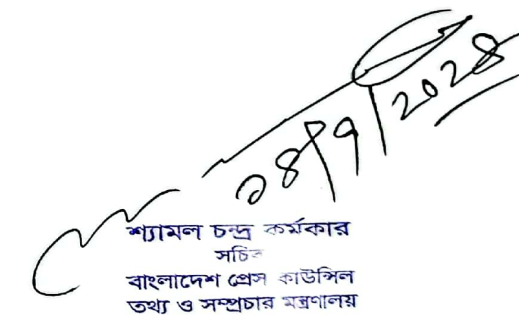 ১৪/৭/২০২৪
শ্যামল চন্দ্র কর্মকার
সচিব
বাংলাদেশ প্রেস কাউন্সিল
তথ্য ও সম্প্রচার মন্ত্রণালয়